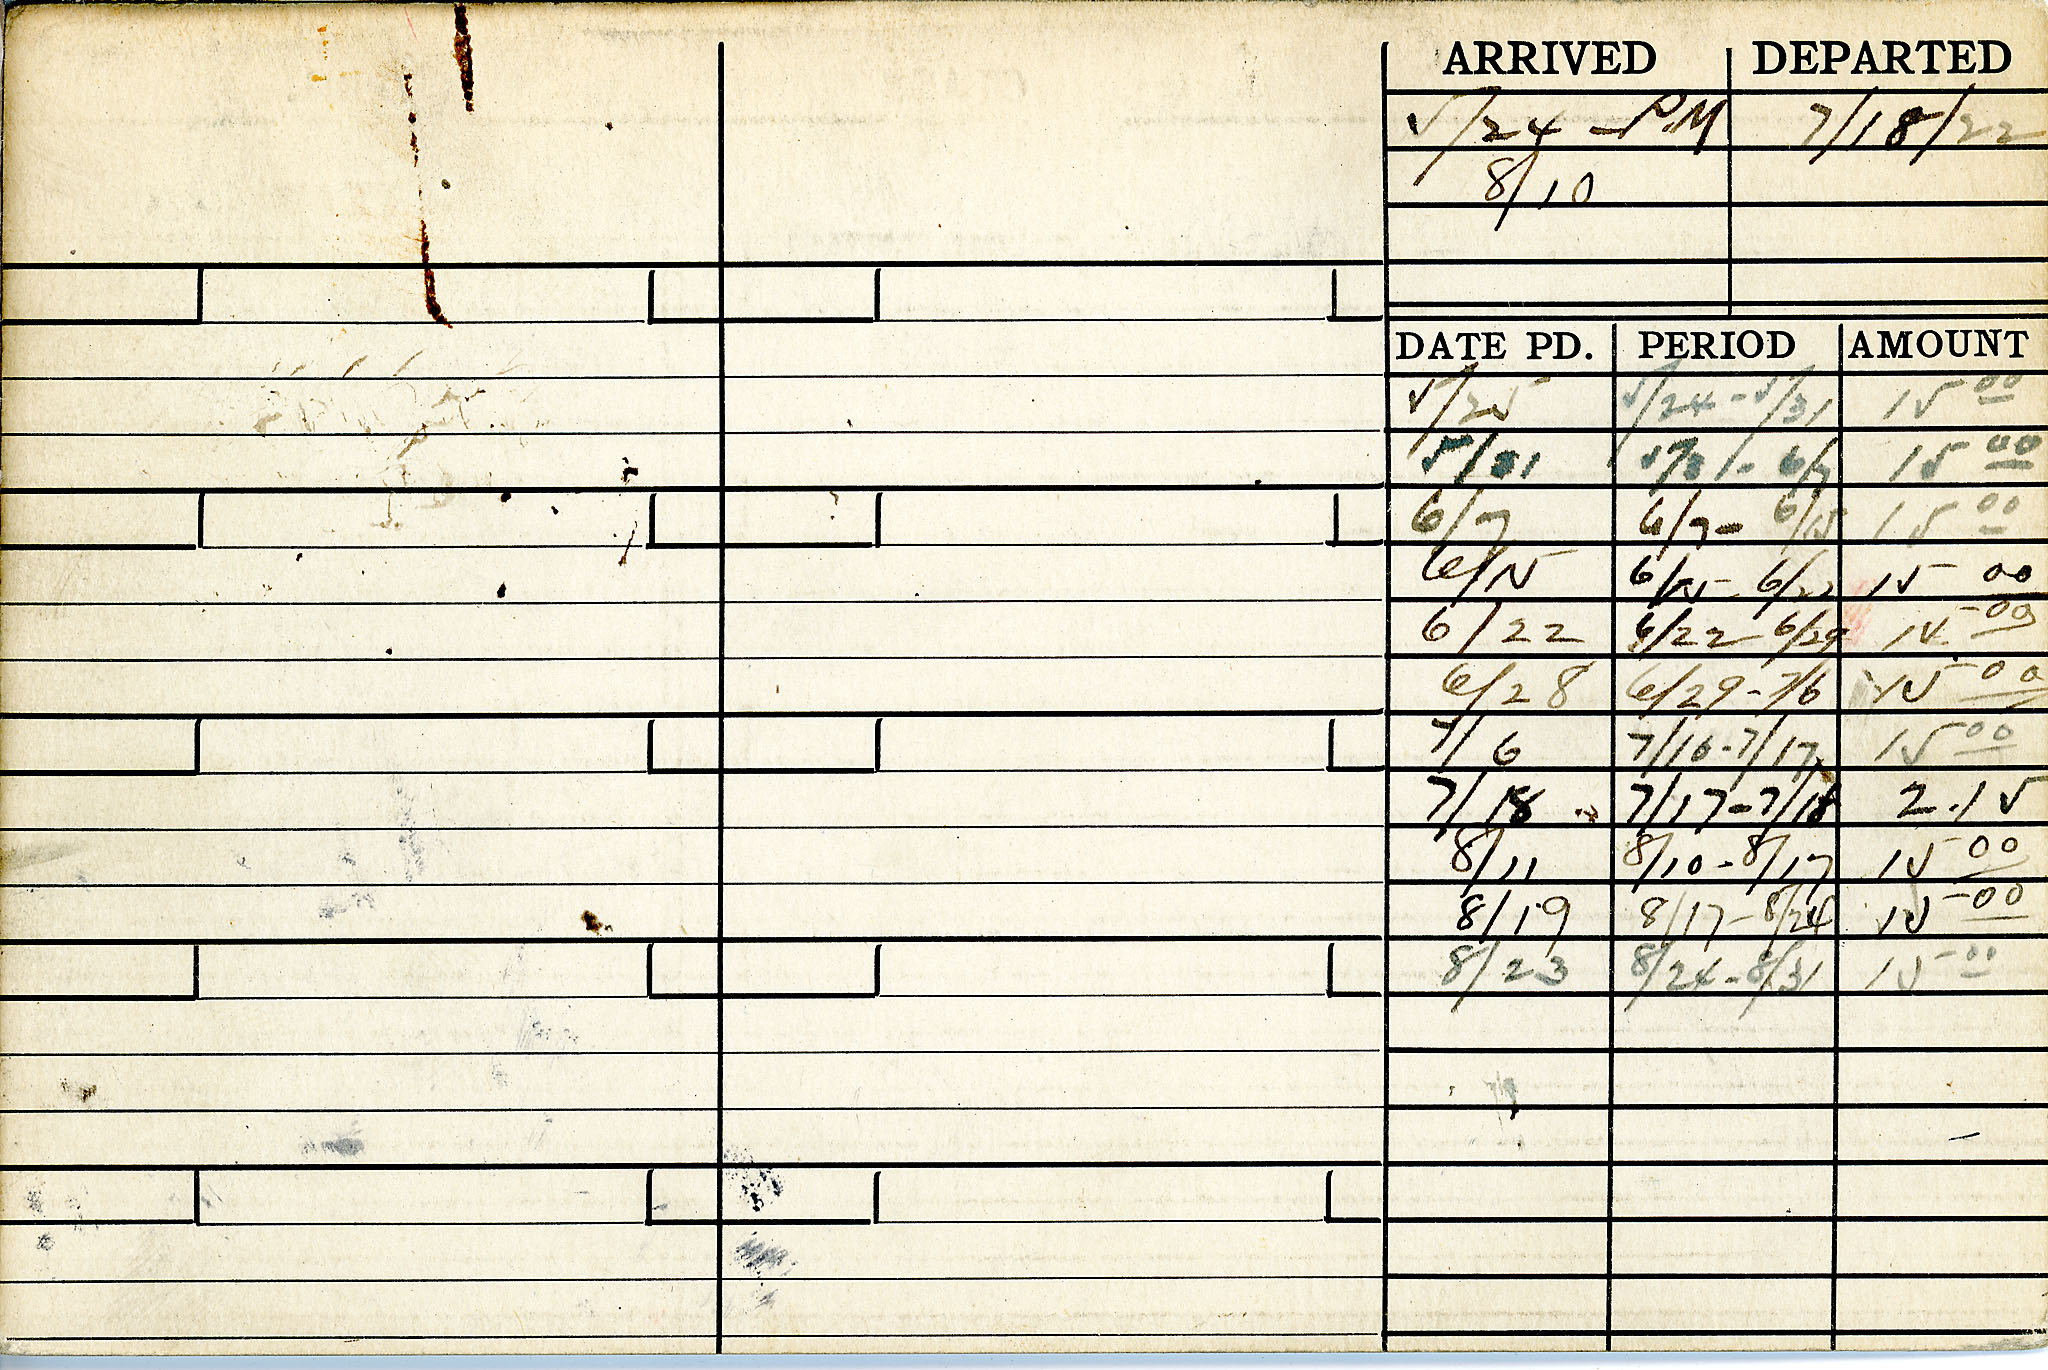 ARRIVED DEPARTED
5/24 - P.M 7/18/22
8/10
DATE PD. PERIOD AMOUNT
5/25 5/24 - 5/31 15 00
5/31 5/31 - 6/7 15 00
6/7 6/7 - 6/15 15 00
6/15 6/15 - 6/22 15 00
6/22 6/22 - 6/29 15 00
6/28 6/29 - 7/6 15 00
7/6 7/10 - 7/17 15 00
7/18 7/17 - 7/18 2.15
8/11 8/10 - 8/17 15 00
8/19 8/17 - 8/24 15 00
8/23 8/24 - 8/31 15 00